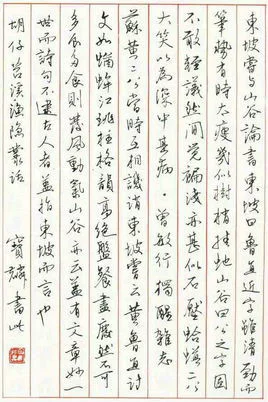 東坡嘗与山谷論書東坡曰魯直近字雖清勁而
筆勢有時太瘦幾似樹梢挂蛇山谷曰公之字固
不敢輕議然間覺褊淺亦甚似石壓蛤蟆二公
大笑以為深中其病·曾敏行獨醒雜志
蘇黃二公當時互相譏誚東坡嘗云黃魯直詩
文如蝤蛑江瑤柱格韻高絕盤餐盡廢然不可
多食多食則發風動氣山谷亦云蓋有文章妙一
世而詩句不逮古人者蓋指東坡而言也
胡仔苕溪漁隱叢話
寶麟書此